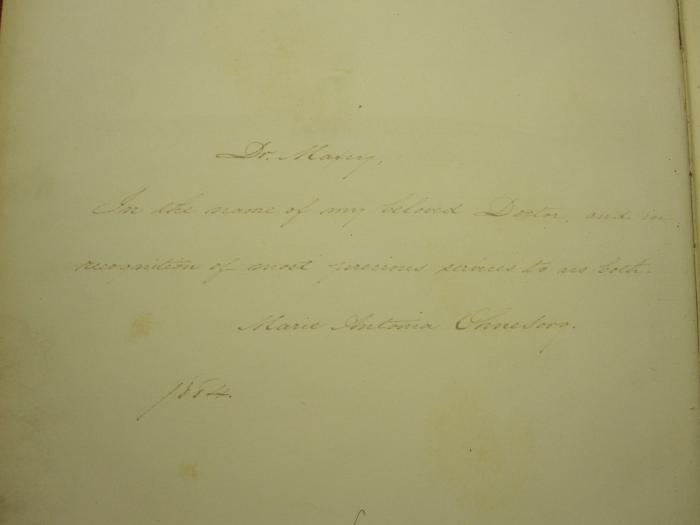 Dr. Maxey,
In the name of my beloved Doctor, and in
recognition of most precious services to us both.
Marie Antonia Ohnesorg.
1884.